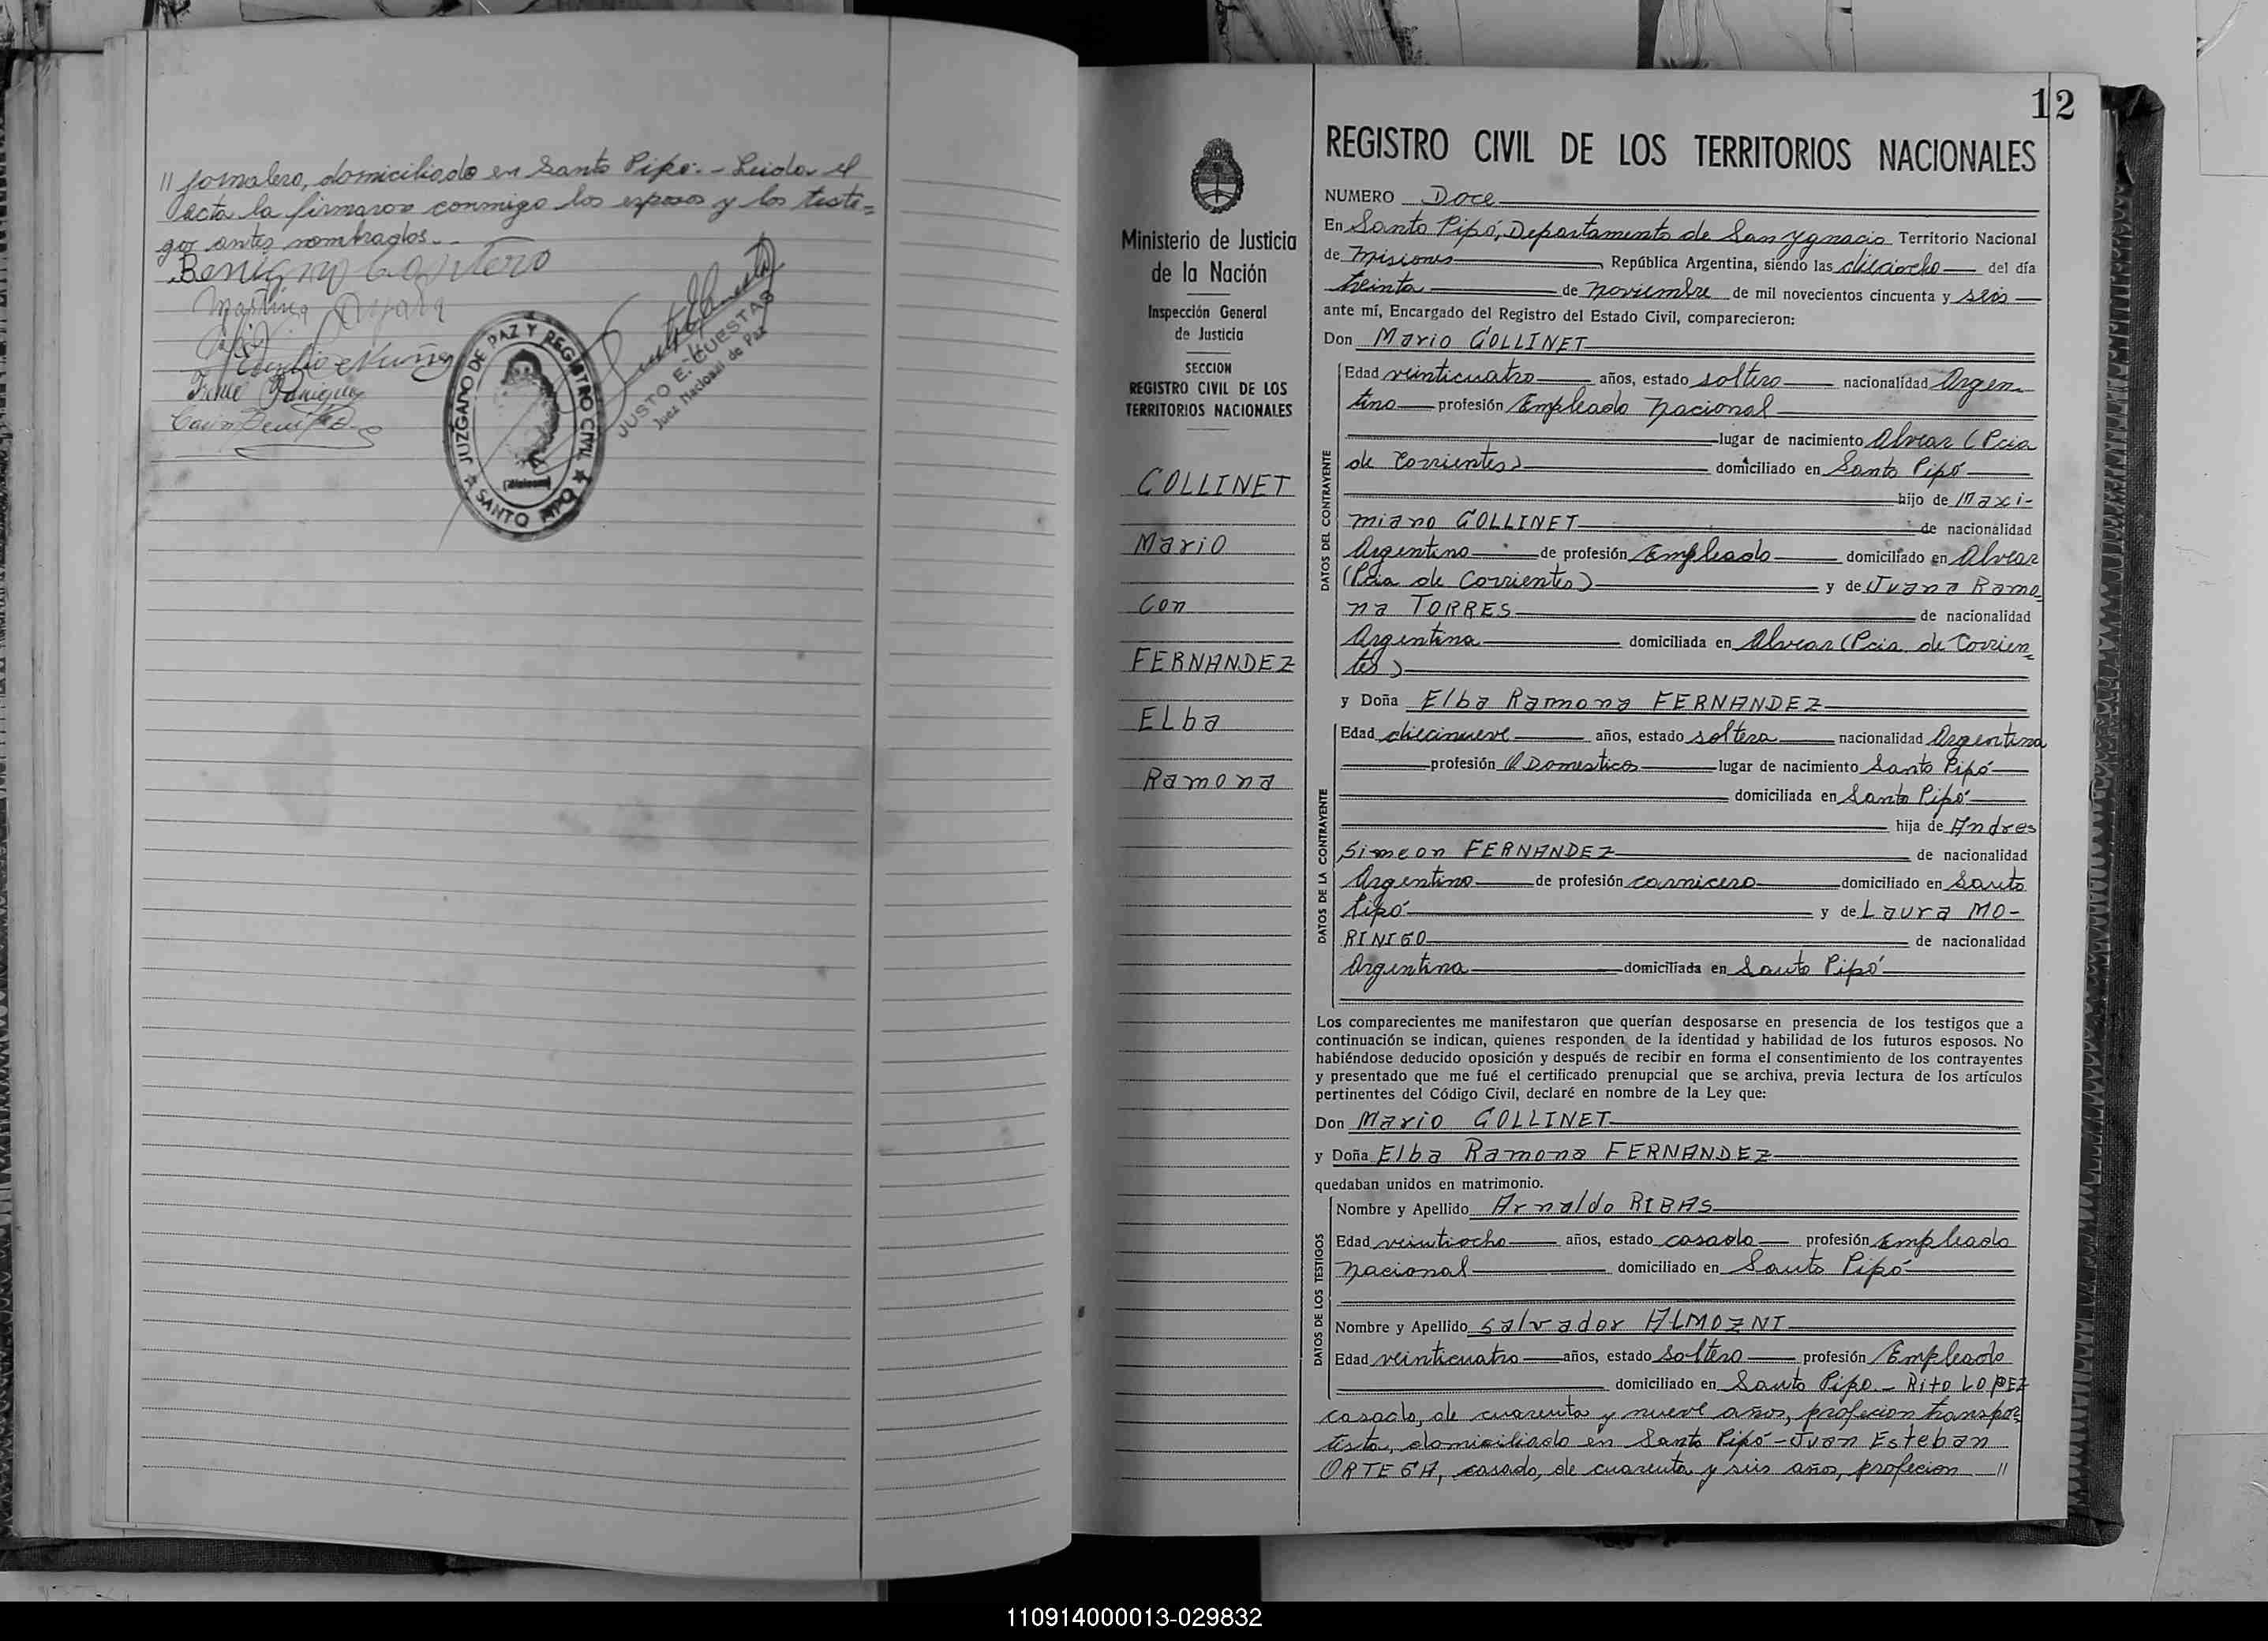 // jornalero, domiciliado en Santo Pipó.- Leida el
acta la firmaron conmigo los esposos y los testi=
gos antes nombrados.-
Benigno
Martina Ayala
JUZGADO DE PAZ Y REGISTRO CIVIL
SANTO PIPO
(Misiones)
JUSTO E. CUESTAS
Juez Nacional de Paz
12
Ministerio de Justicia
de la Nación
Inspección General
de Justicia
SECCION
REGISTRO CIVIL DE LOS
TERRITORIOS NACIONALES
GOLLINET
Mario
Con
FERNANDEZ
ELba
Ramona
REGISTRO CIVIL DE LOS TERRITORIOS NACIONALES
NUMERO Doce
En Santo Pipó, Departamento de San Ygnacio Territorio Nacional
de Misiones, República Argentina, siendo las dieciocho del día
treinta de noviembre de mil novecientos cincuenta y seis
ante mí, Encargado del Registro del Estado Civil, comparecieron:
Don Mario GOLLINET
DATOS DEL CONTRAYENTE
Edad veinticuatro años, estado soltero nacionalidad Argen=
tino profesión Empleado Nacional
lugar de nacimiento Alvear (Pcia
de Corrientes) domiciliado en Santo Pipó
hijo de Maxi-
miano GOLLINET de nacionalidad
Argentino de profesión Empleado domiciliado en Alvear
(Pcia de Corrientes) y de Juana Ramo=
na TORRES de nacionalidad
Argentina domiciliada en Alvear (Pcia de Corrien=
tes)
y Doña Elba Ramona FERNANDEZ
DATOS DE LA CONTRAYENTE
Edad diecinueve años, estado soltera nacionalidad Argentina
profesión Q Domesticos lugar de nacimiento Santo Pipó
domiciliada en Santo Pipó
hija de Andres
Simeon FERNANDEZ de nacionalidad
Argentino de profesión carnicero domiciliado en Santo
Pipó y de Laura MO-
RINIGO de nacionalidad
Argentina domiciliada en Santo Pipó
Los comparecientes me manifestaron que querían desposarse en presencia de los testigos que a
continuación se indican, quienes responden de la identidad y habilidad de los futuros esposos. No
habiéndose deducido oposición y después de recibir en forma el consentimiento de los contrayentes
y presentado que me fué el certificado prenupcial que se archiva, previa lectura de los artículos
pertinentes del Código Civil, declaré en nombre de la Ley que:
Don Mario GOLLINET
y Doña Elba Ramona FERNANDEZ
quedaban unidos en matrimonio.
DATOS DE LOS TESTIGOS
Nombre y Apellido Arnaldo RIBAS
Edad veintiocho años, estado casado profesión Empleado
Nacional domiciliado en Santo Pipó
Nombre y Apellido Salvador ALMOZNI
Edad veinticuatro años, estado soltero profesión Empleado
domiciliado en Santo Pipo.- Rito LOPEZ
casado, de cuarenta y nueve años, profecion transpor=
tista, domiciliado en Santo Pipó - Juan Esteban
ORTEGA, casado, de cuarenta y seis años, profecion //
110914000013-029832